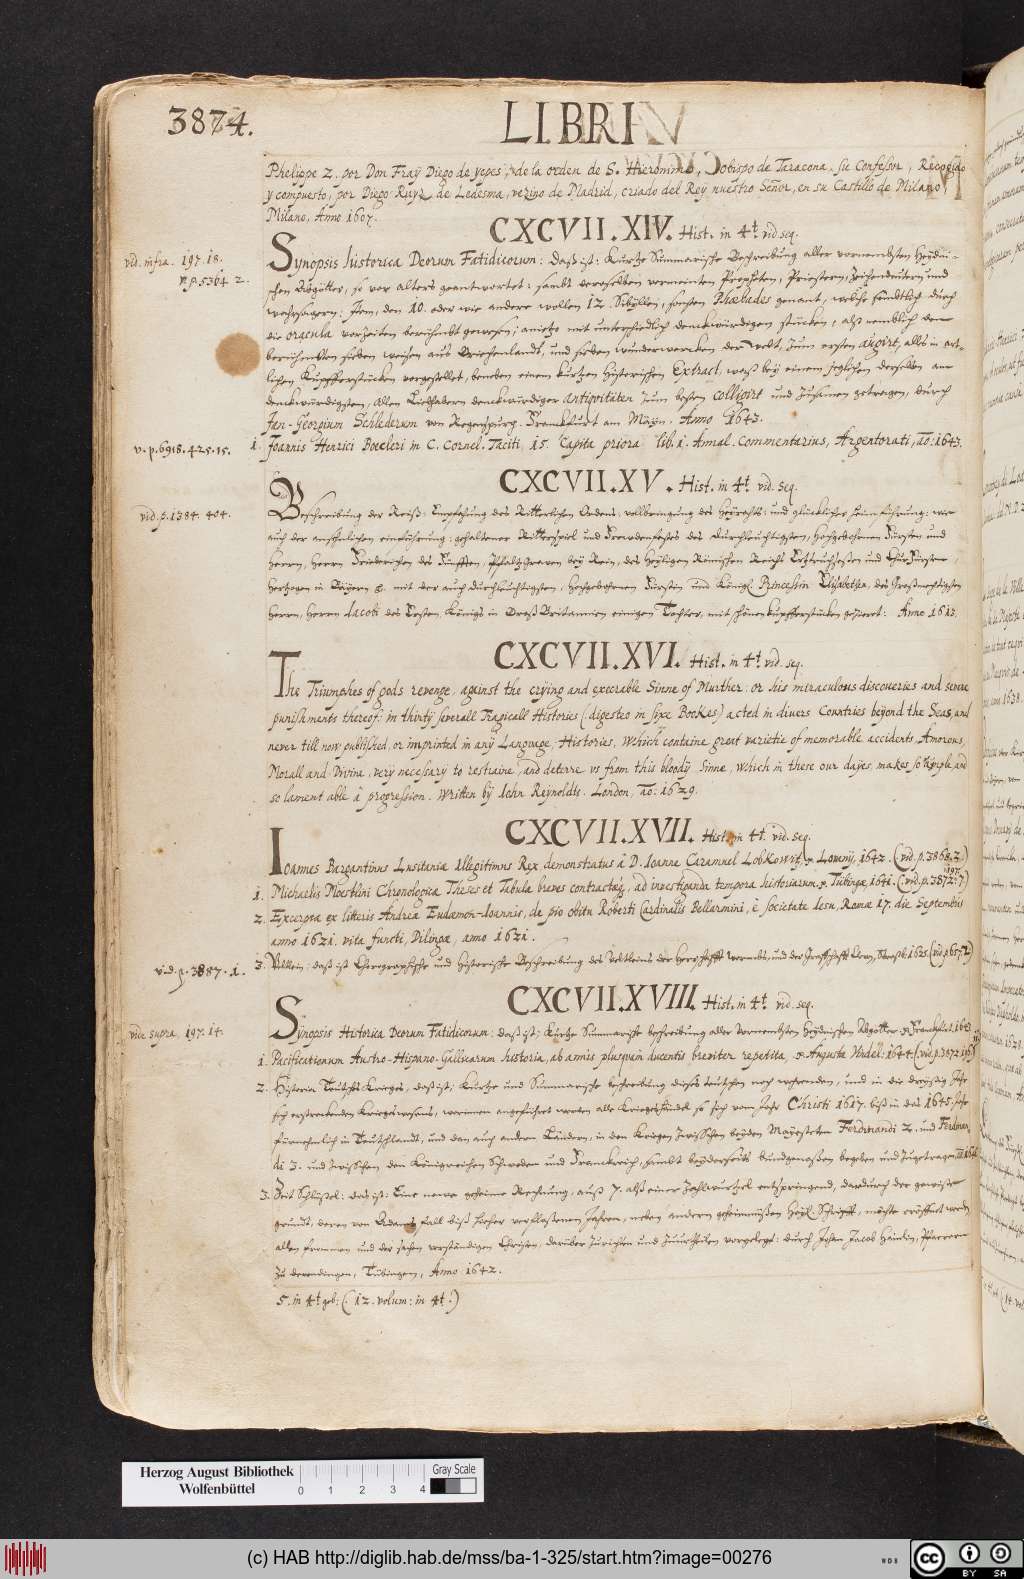 3874.
LIBRI
Phelippe 2. por Don Fraÿ Diego de yepes, de la orden de S. Hieronimo, obispo de Taracona, su Confessor, Recogido
y compuesto, por Diego Ruyz de Ledesma, vezino de Madrid, criado del Rey nuestro Señor, en su Castillo de Milano,
Milano, Anno 1607.
CXCVII.XIV. Hist. in 4t. vid seq.
vid. infra. 197. 18.
p. 5364. 2.
Synopsis historica Deorum Fatidicorum: daß ist: Kurtze Summarische Beschreibung aller vornembsten Heydni-
schen Abgötter, so vor alters geantwortet: sambt derselben vermeinten Propheten, Priestern, Zeichendeutern und
wahrsagern: Item, den 10. oder wie andere wollen 12. Sibyllen, sonsten Phœbades genant, welche sämbtlich durch
die oracula vorzeiten berühmbt gewesen; anietzo mit unterschiedlich denckwürdigen stücken, alß nemblich den
berühmbten sieben weisen aus Griechenlandt, und sieben wunderwercken der welt, zum ersten augirt, alles in art-
lichen Kupfferstücken vorgestellet, beneben einem kurtzen Historischen Extract, waß bey einem jeglichen derselben am
denckwürdigsten, allen Liebhabern denckwürdiger antiquitäten zum besten colligirt und zusamen getragen, durch
Jan-Georgium Schlederum von Regenspurg. Franckfurt am Mäyn. Anno 1643.
v. p. 6918. 425. 15.
1. Joannis Henrici Boecleri in C. Cornel. Taciti, 15. Capita priora lib. 1. Annal. Commentarius, Argentorati, ao: 1643.
CXCVII.XV. Hist. in 4t. vid. seq.
vid. p. 1384. 404.
Beschreibung der Reiß: Empfahung des Ritterlichen Ordens: vollbringung des Heyraths: und glücklicher heimführung: wie
auch der ansehnlichen einführung: gehaltener Ritterspiel und Freudenfests des Durchleuchtigsten, Hochgebohrnen Fürsten und
Herrn, Herrn Friederichen des Fünfften, Pfaltzgraven bey Rein, des Heyligen Römischen Reichs Ertztruchsessen und Churfürsten,
Hertzogen in Bäyern &. mit der auch durchleuchtigsten, Hochgebohrnen Fürstin und Königl. Princessin Elisabethen, des Großmechtigsten
Herrn, Herrn Iacobi des Ersten, Königs in Groß Britannien einigen Tochter, mit schönen kupfferstücken gezieret: Anno 1613.
CXCVII.XVI. Hist. in 4t. vid. seq.
The Triumphes of gods revenge, against the crÿing and execrable Sinne of Murther: or his miraculous discoueries and severe
punishments thereof: in thirtÿ severall Tragicall Histories (digested in sixe Bookes) acted in divers Countries beÿond the Seas, and
never till now published, or imprinted in anÿ Language, Histories, which containe great varietie of memorable accidents, Amorous,
Morall and Divine, verÿ necessarÿ to restraine, and deterre us from this bloody Sinne, which in these our daÿes, makes so ample, and
so lament able à progression. Written bÿ Iohn Reÿnolds. London, ao: 1629.
CXCVII.XVII. Hist. in 4t. vid. seq.
Ioannes Bargantinus Lusitaniæ illegitimus Rex demonstratus à D. Ioanne Caramuel Lobkowitz, Lovanÿ, 1642. (vid. p. 3868. 2.)
1. Michaelis Moestlini Chronologicæ Theses et Tabulæ breves contractæq, ad investiganda tempora historiarum, Tübingæ, 1641. (vid. p. 3872. 197. 7.)
2. Excerpta ex litteris Andreæ Eudæmon-Ioannis, de pio obitu Roberti Cardinalis Bellarmini, è societate Iesu, Romæ 17. die Septembris
anno 1621. vita functi, Dilingæ, anno 1621.
vid. p. 3887. 1.
3. Veltlein: daß ist Chorographische und Historische Beschreibung des Veltleins der Herrschafft wormbs, und der Graffschafft Cleven, Strasb: 1625. (vid p. 657. 2.)
CXCVII.XVIII. Hist. in 4t. vid. seq.
vide supra. 197. 14.
Synopsis Historica Deorum Fatidicorum: daß ist: Kurtze Summarische beschreibung aller Vornembsten Heydnischen Abgötter, Franckfurt, 1643.
1. Pacificationum Austro-Hispano-Gallicarum historia, ab annis plusquam ducentis breviter repetita, Augustæ Vindel: 1644. (vid. p. 3872. 196.)
2. Historia Teutsches Krieges, daß ist: Kurtze und Summarische beschreibung dieses teutschen noch wehrenden, und in die dreyssig Jahr
sich erstreckenden Kriegswesens, worinnen angeführet werden alle Kriegshändel so sich vom Jahr Christi 1617. biß in das 1645. Jahr
fürnehmlich in Teutschlandt, und dan auch andern Ländern, in den Kriegen zwischen beyden Mayesteten Ferdinandi 2. und Ferdinan
di 3. und zwischen den Königreichen Schweden und Franckreich, sambt beyderseits bundgenossen begeben und zugetragen,
3. Zeit Schlüssel: das ist: Eine newe geheime Rechnung, auß 7. alß einer Zahlwurtzel entspringend, dardurch der gewisse
grundt, deren von Adams Fall biß hieher verflossenen Jahren, neben andern geheimnüssen Heyl. Schrifft, möchte eröffnet werden
allen frommen und der sachen verständigen Christen, darüber zurichten und zuurtheilen vorgelegt: durch Johan Jacob Hainlin, Pfarrern
zu Derendingen, Tübingen, Anno 1642.
5. in 4t. geb: (12. volum: in 4t.)
Herzog August Bibliothek
Wolfenbüttel
0 1 2 3 4
Gray Scale
(c) HAB http://diglib.hab.de/mss/ba-1-325/start.htm?image=00276
WDB
cc BY SA